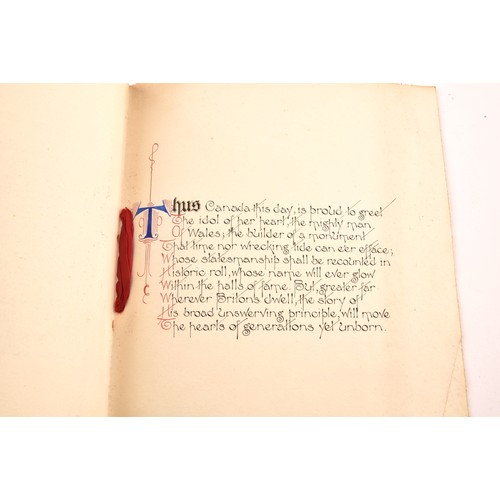 Thus Canada this day, is proud to greet
The idol of her heart, the mighty man
Of Wales; the builder of a monument
That time nor wrecking tide can e'er efface;
Whose statesmanship shall be recounted in
Historic roll, whose name will ever glow
Within the halls of fame. But, greater far
Wherever Britons dwell, the story of
His broad unswerving principle, will move
The hearts of generations yet unborn.